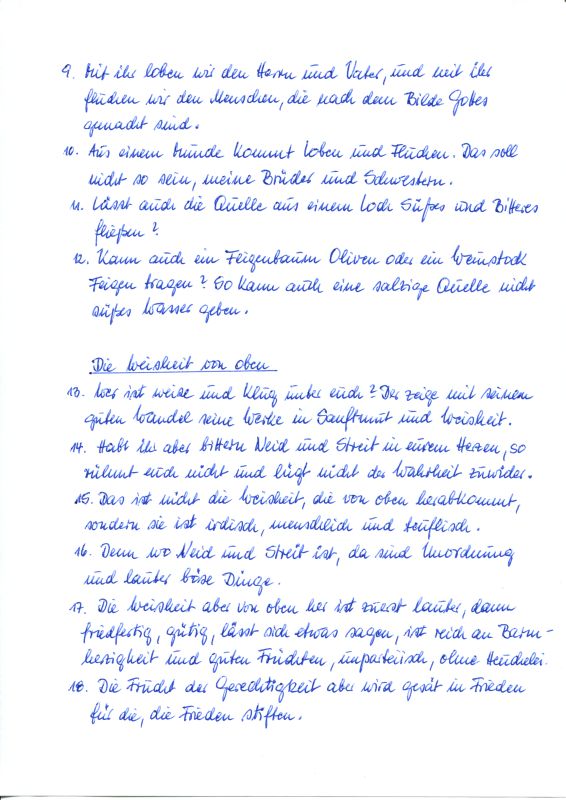 9. Mit ihr loben wir den Herrn und Vater, und mit ihr
fluchen wir den Menschen, die nach dem Bilde Gottes
gemacht sind.
10. Aus einem Munde kommt Loben und Fluchen. Das soll
nicht so sein, meine Brüder und Schwestern.
11. Lässt auch die Quelle aus einem Loch Süßes und Bitteres
fließen?
12. Kann auch ein Feigenbaum Oliven oder ein Weinstock
Feigen tragen? So kann auch eine salzige Quelle nicht
süßes Wasser geben.
Die Weisheit von oben
13. Wer ist weise und klug unter euch? Der zeige mit seinem
guten Wandel seine Werke in Sanftmut und Weisheit.
14. Habt ihr aber bittern Neid und Streit in eurem Herzen, so
rühmt euch nicht und lügt nicht der Wahrheit zuwider.
15. Das ist nicht die Weisheit, die von oben herabkommt,
sondern sie ist irdisch, menschlich und teuflisch.
16. Denn wo Neid und Streit ist, da sind Unordnung
und lauter böse Dinge.
17. Die Weisheit aber von oben her ist zuerst lauter, dann
friedfertig, gütig, lässt sich etwas sagen, ist reich an Barm-
herzigkeit und guten Früchten, unparteiisch, ohne Heuchelei.
18. Die Frucht der Gerechtigkeit aber wird gesät in Frieden
für die, die Frieden stiften.